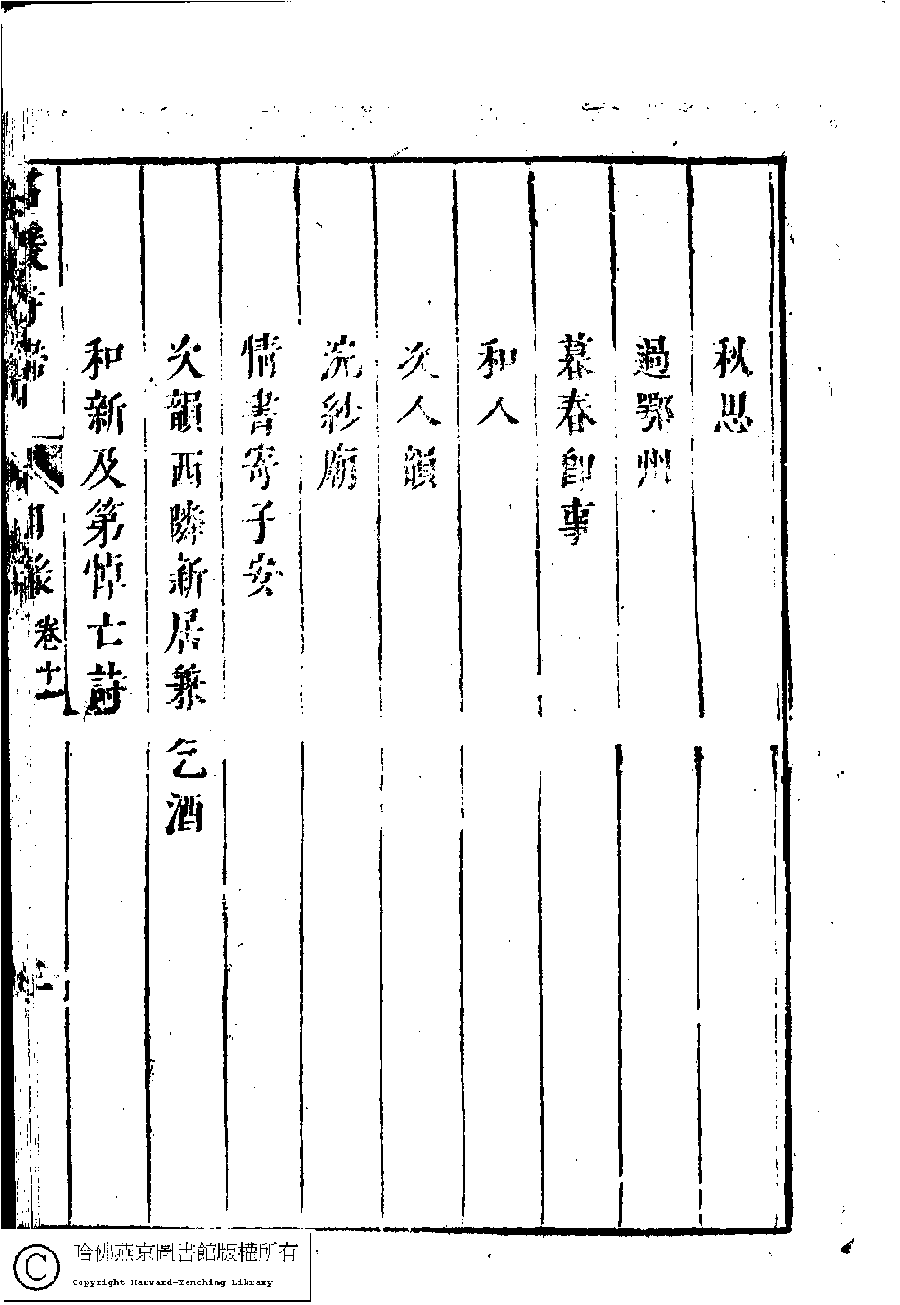 秋思
過鄂州
暮春卽事
和人
次人韻
浣紗廟
情書寄子安
次韻西隣新居兼乞酒
和新及第悼亡詩
名媛詩歸 目錄 卷十一
哈佛燕京圖書館版權所有
Copyright Harvard-Yenching Library